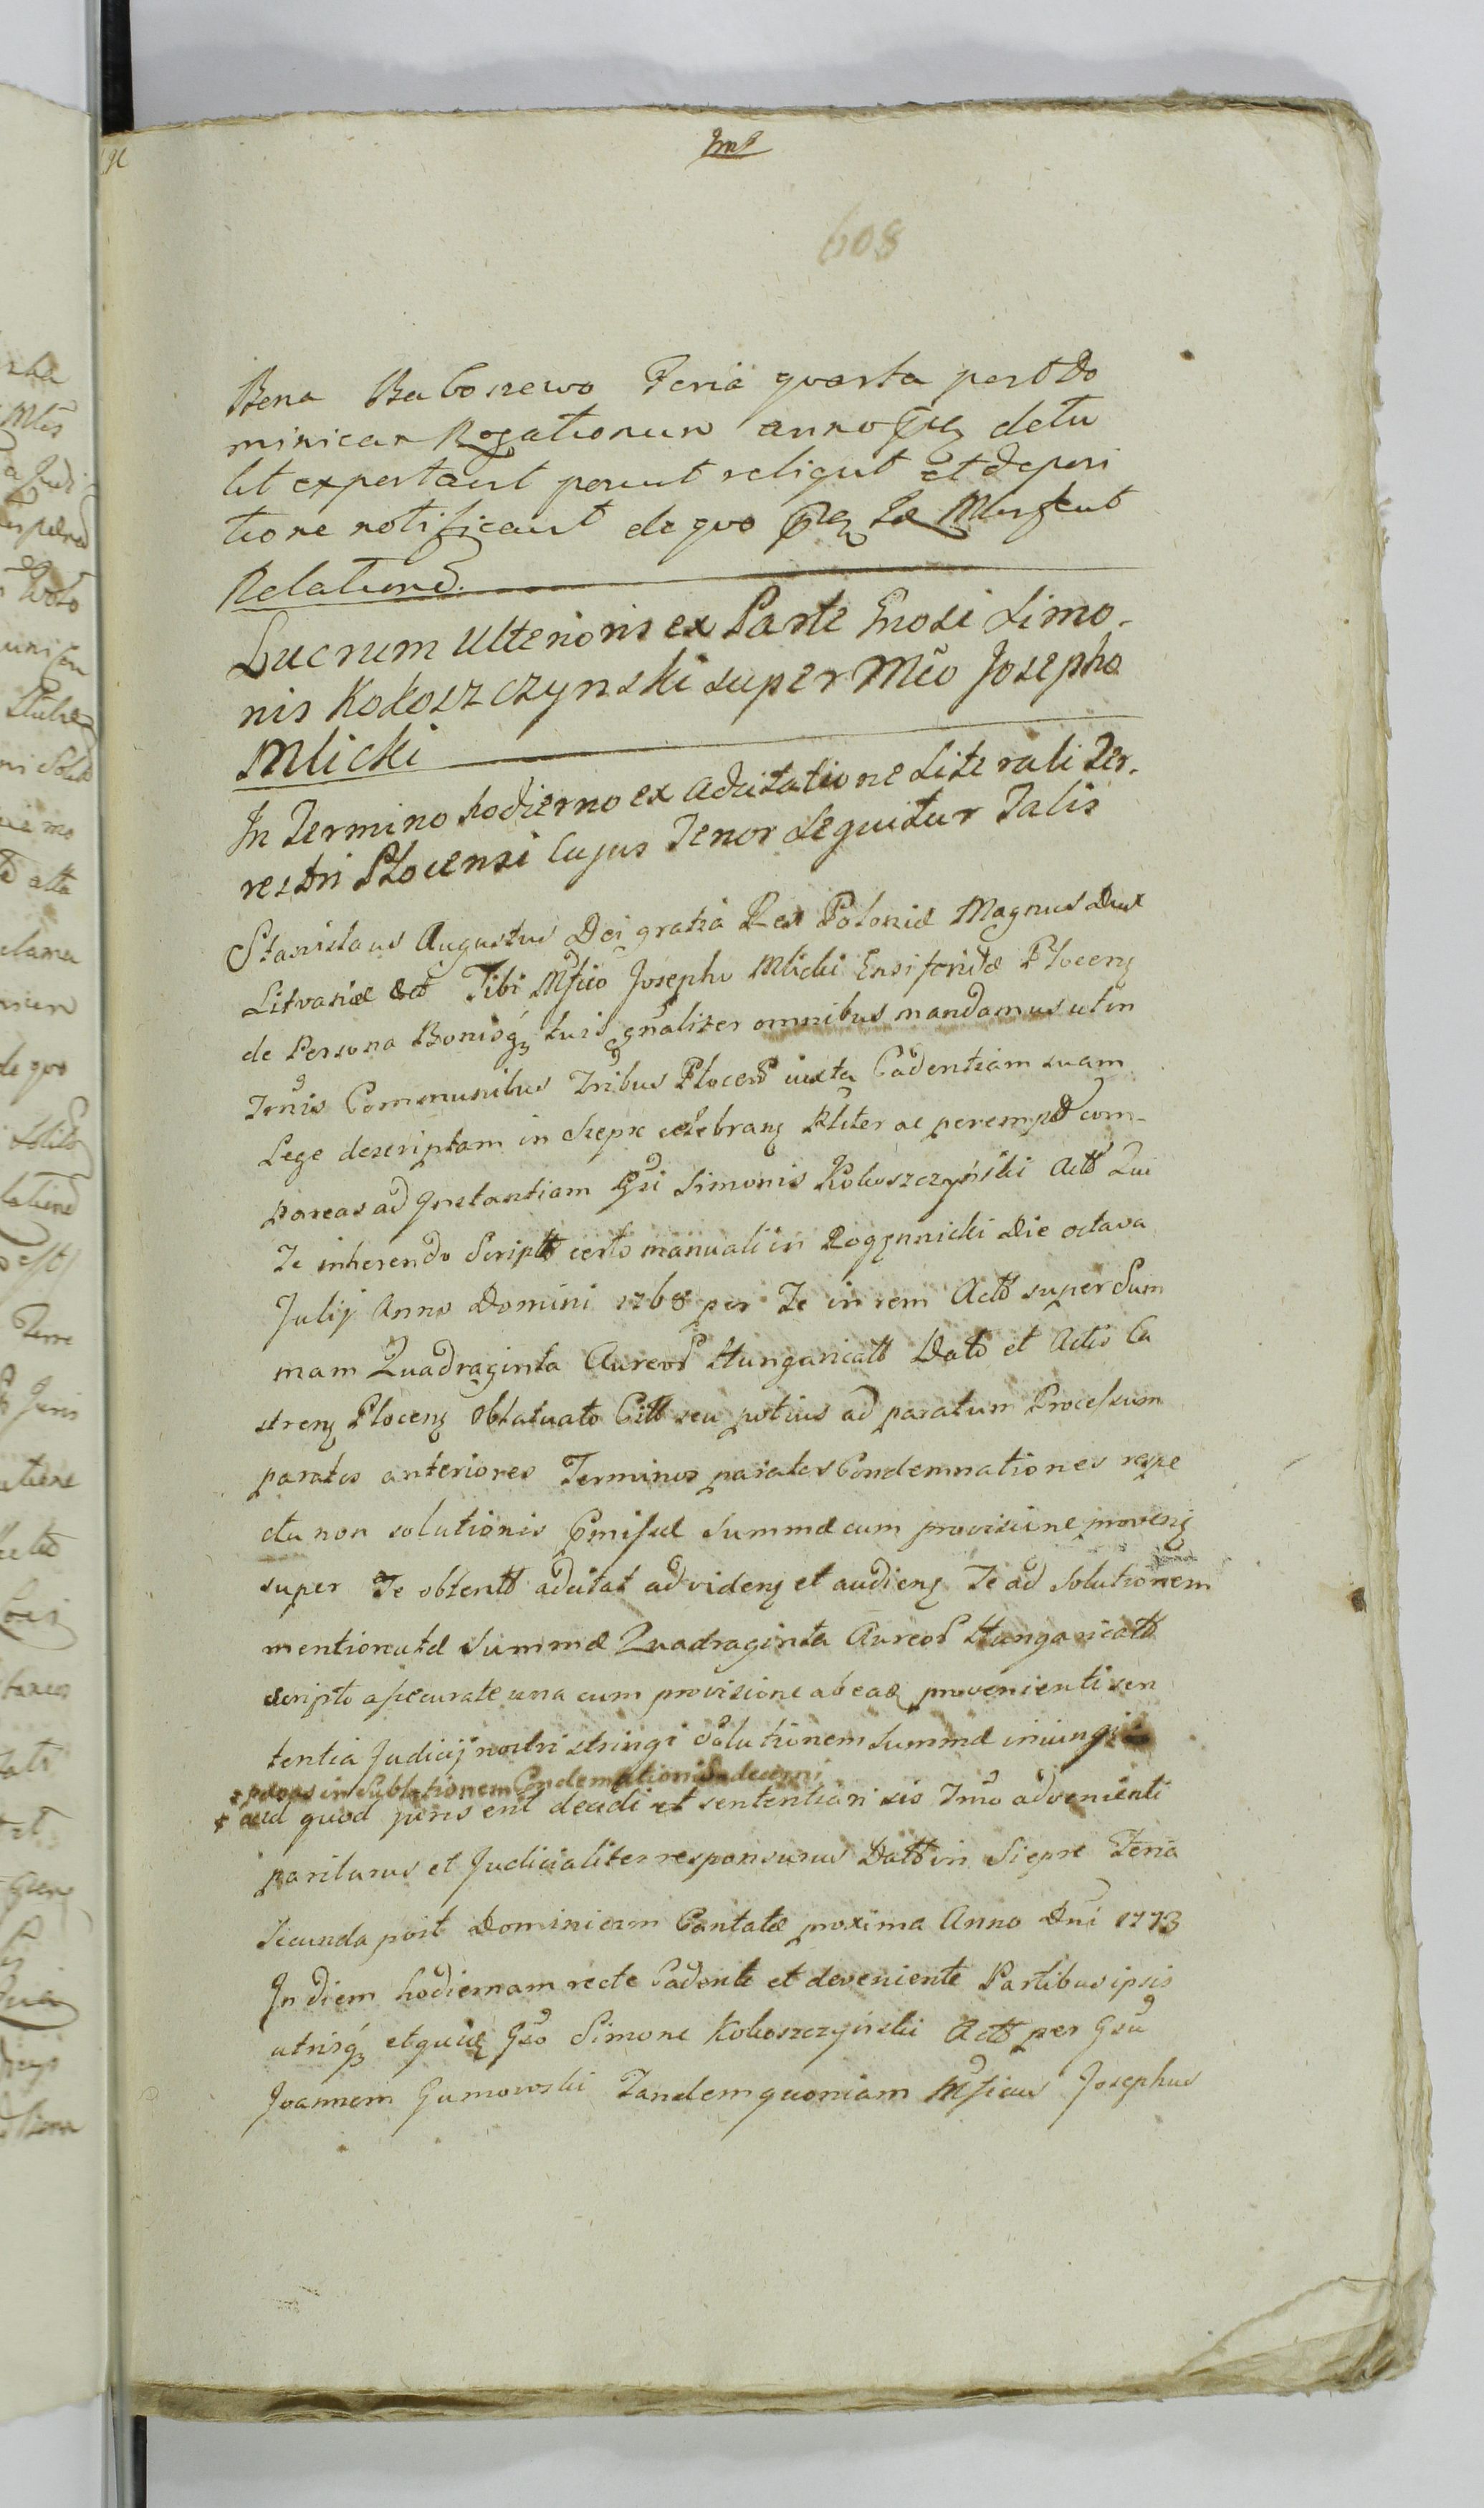 608
Bona Babosewo Feria quarta post Do
minicam Rogationum anno detu
lit exportavit posuit reliquit et deposi
tione notificavit de quo
Relationē.
Lucrum Ulterioris ex Parte Gnosi Simo-
nis Kokoszczynski super Mco Josepho
Mlicki
In Termino hodierno ex Adcitatione Literali Ter-
restri Plocensi Cujus Tenor Sequitur Talis
Stanislaus Augustus Dei gratia Rex Poloniæ Magnus Dux
Litvaniæ Tibi Mfico Josepho Mlicki Ensiferidæ Plocenẓ
de Persona Bonisq̃ tuis gñaliter omnibus mandamus ut in
Tm̃is Communibus Tribus Plocen iuxta Cadentiam suam
Lege descriptam in Siepre celebranẓ Pliter ac perempt com-
pareas ad Jnstantiam Gsi Simonis Kokoszczyński Act Qui
Te inherendo Script certo manuali in Die octava
Julij Anno Domini 1768 per Te in rem Act super Sum
mam Quadraginta Aureor Hungaricat Dato et Actis Ca
strenẓ Plocenẓ Oblatuato Citt seu potius ad paratum Processum
paratos anteriores Terminos paratas Condemnationes respe
ctu non solutionis summæ cum provisione provenẓ
super Te obtent adcitat ad videnẓ et audienẓ Te ad Solutionem
mentionatæ Summæ Quadraginta Aureor Hungaricat
scripto assecuratæ una cum provisione ab eaq̨ provenienti sen
tentia Judicij nostri stringi Solutionem Summæ iniungi
pœnas in Sublationem Condemnationis decerni
quod juris erit decidi et sententiari sis Tm̃o advenienti
pariturus et Judicialiter responsurus Datt in Siepre Feria
Secunda post Dominicam Cantatæ proxima Anno Dni 1773
In diem hodiernam recte Cadente et deveniente Partibus ipsis
utrisq̃ Gso Simone Kokoszczyński Act per Gsu
Joannem Gumowski Tandem quoniam Mficus Josephus